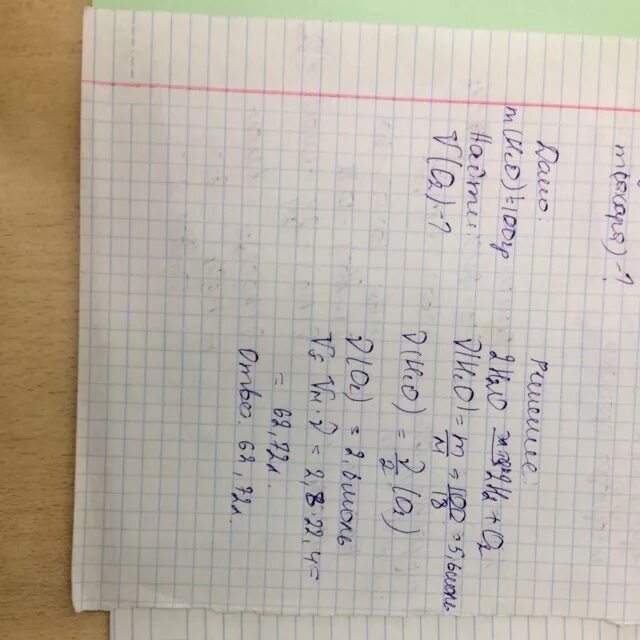 m(сахара)-?
Дано
m(H₂O)=100гр
Найти:
V(O₂)-?
Решение:
2H₂O → 2H₂ + O₂
ν(H₂O) = m/M = 100/18 = 5,6моль
ν(H₂O)/2 = ν(O₂)
ν(O₂) = 2,8моль
V = Vм · ν = 2,8 · 22,4 =
= 62,72л.
Отве. 62,72л.